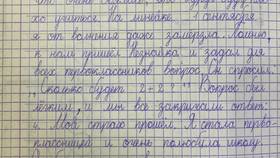 хо учиться на
1 сентября
я от волнения даже замёрзла. Линию,
к нам пришёл Незнайка и задал для
всех первоклассников вопрос. Он спросил:
"Сколько будет 2+2?" Вопрос был
лёгким, и мы все закричали ответ:
4. Мой страх прошёл. Я стала перво-
классницей и очень полюбила школу.